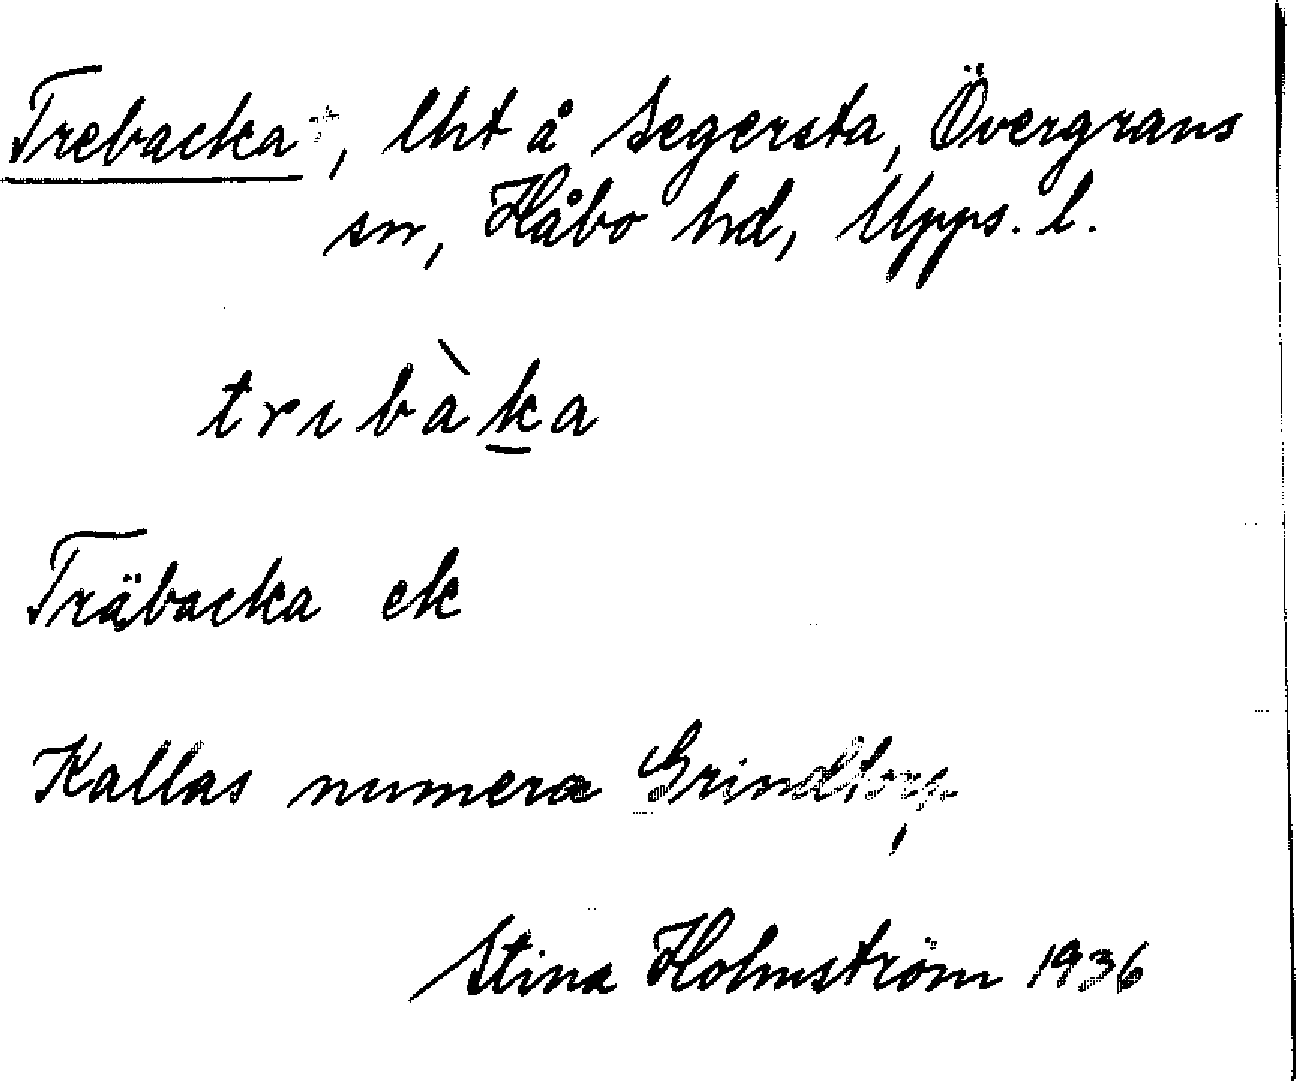 Trebacka, lht å Segersta, Övergrans
sn, Håbo hd, Upps. l.
trıbàka
Träbacka ek
Kallas numera Grindtorp
Stina Holmström 1936